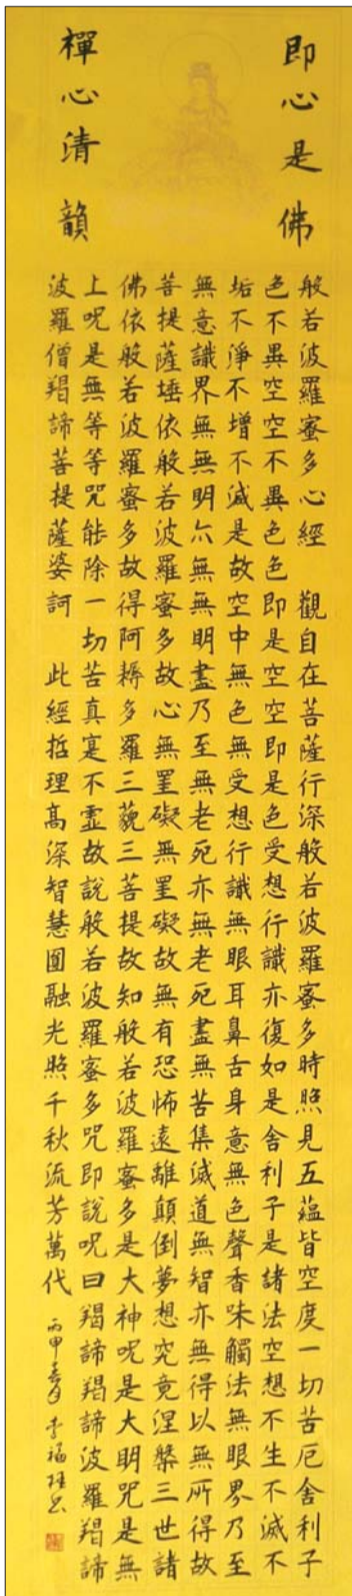 即心是佛
禪心清韻
般若波羅蜜多心經 觀自在菩薩行深般若波羅蜜多時照見五蘊皆空度一切苦厄舍利子
色不異空空不異色色即是空空即是色受想行識亦復如是舍利子是諸法空想不生不滅不
垢不淨不增不減是故空中無色無受想行識無眼耳鼻舌身意無色聲香味觸法無眼界乃至
無意識界無無明亦無無明盡乃至無老死亦無老死盡無苦集滅道無智亦無得以無所得故
菩提薩埵依般若波羅蜜多故心無罣礙無罣礙故無有恐怖遠離顛倒夢想究竟涅槃三世諸
佛依般若波羅蜜多故得阿耨多羅三藐三菩提故知般若波羅蜜多是大神呪是大明咒是無
上呪是無等等咒能除一切苦真寔不虛故說般若波羅蜜多咒即說呪曰羯諦羯諦波羅羯諦
波羅僧羯諦菩提薩婆訶 此經哲理高深智慧圓融光照千秋流芳萬代 丙申 李福